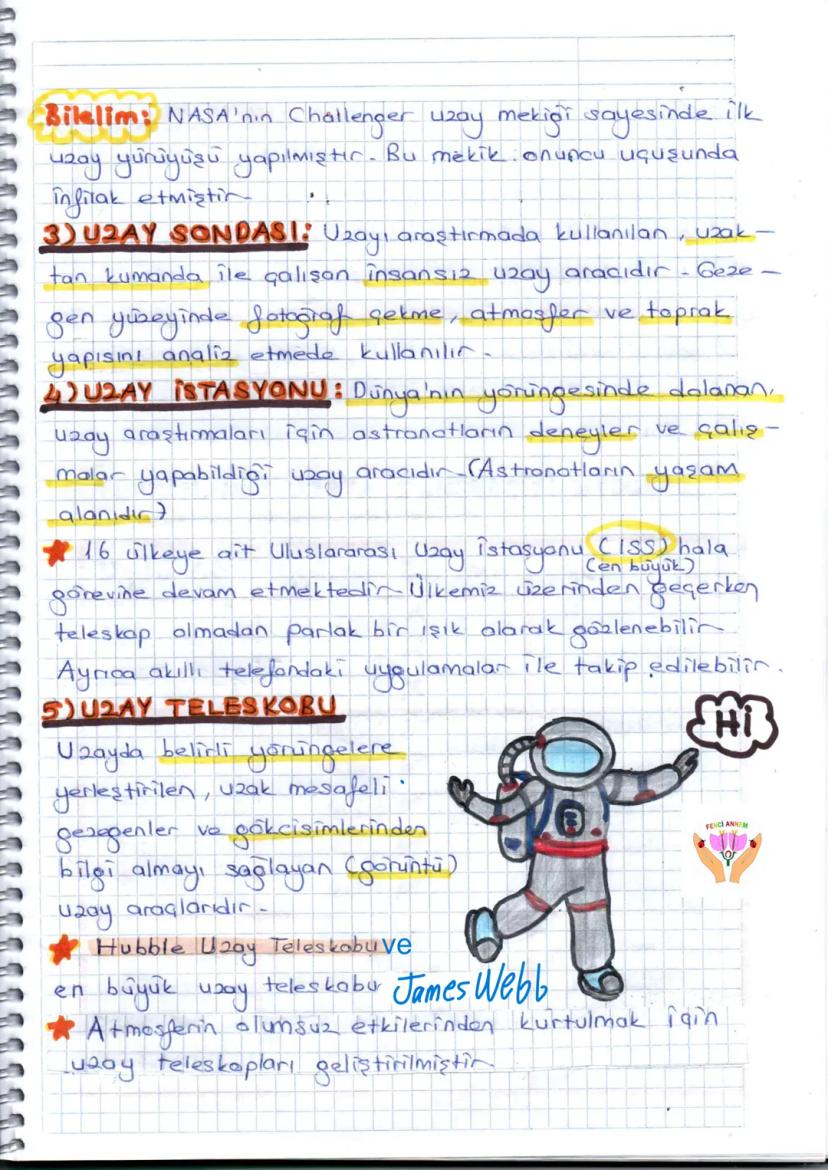 Bilelim: NASA'nın Challenger uzay mekiği sayesinde ilk
uzay yürüyüşü yapılmıştır. Bu mekik onuncu uçuşunda
infilak etmiştir.
3) UZAY SONDASI: Uzayı araştırmada kullanılan, uzak-
tan kumanda ile çalışan insansız uzay aracıdır. Geze-
gen yüzeyinde fotoğraf çekme, atmosfer ve toprak
yapısını analiz etmede kullanılır.
4) UZAY İSTASYONU: Dünya'nın yörüngesinde dolanan,
uzay araştırmaları için astronotların deneyler ve çalış-
malar yapabildiği uzay aracıdır. (Astronotların yaşam
alanıdır)
16 ülkeye ait Uluslararası Uzay İstasyonu (ISS) hala
(en büyük)
görevine devam etmektedir. Ülkemiz üzerinden geçerken
teleskop olmadan parlak bir ışık olarak gözlenebilir.
Ayrıca akıllı telefondaki uygulamalar ile takip edilebilir.
5) UZAY TELESKOBU
Hi
Uzayda belirli yörüngelere
yerleştirilen, uzak mesafeli
gezegenler ve gökcisimlerinden
bilgi almayı sağlayan (görüntü)
uzay araçlarıdır.
FENCİ ANNEM
Hubble Uzay Teleskobu ve
en büyük uzay teleskobu James Webb
Atmosferin olumsuz etkilerinden kurtulmak için
uzay teleskopları geliştirilmiştir.